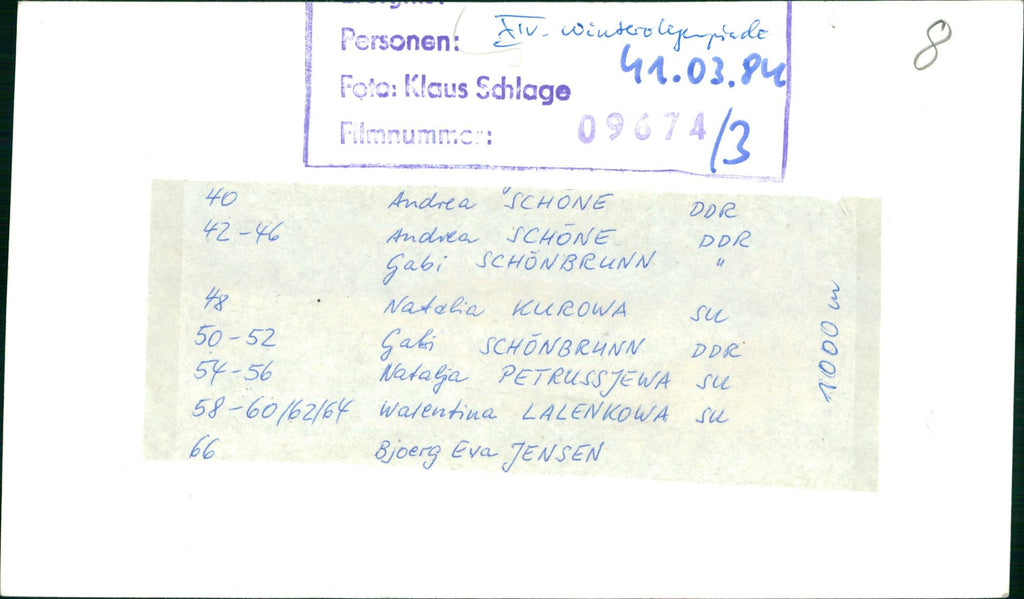 Personen: XIV. Winterolympiade
41.03.84
8
Foto: Klaus Schlage
Filmnummer: 09674/3
40 Andrea SCHÖNE DDR
42-46 Andrea SCHÖNE DDR
Gabi SCHÖNBRUNN "
48 Natalia KUROWA SU
50-52 Gabi SCHÖNBRUNN DDR
54-56 Natalja PETRUSSJEWA SU
58-60/62/64 Walentina LALENKOWA SU
66 Bjoerg Eva JENSEN
1000 m